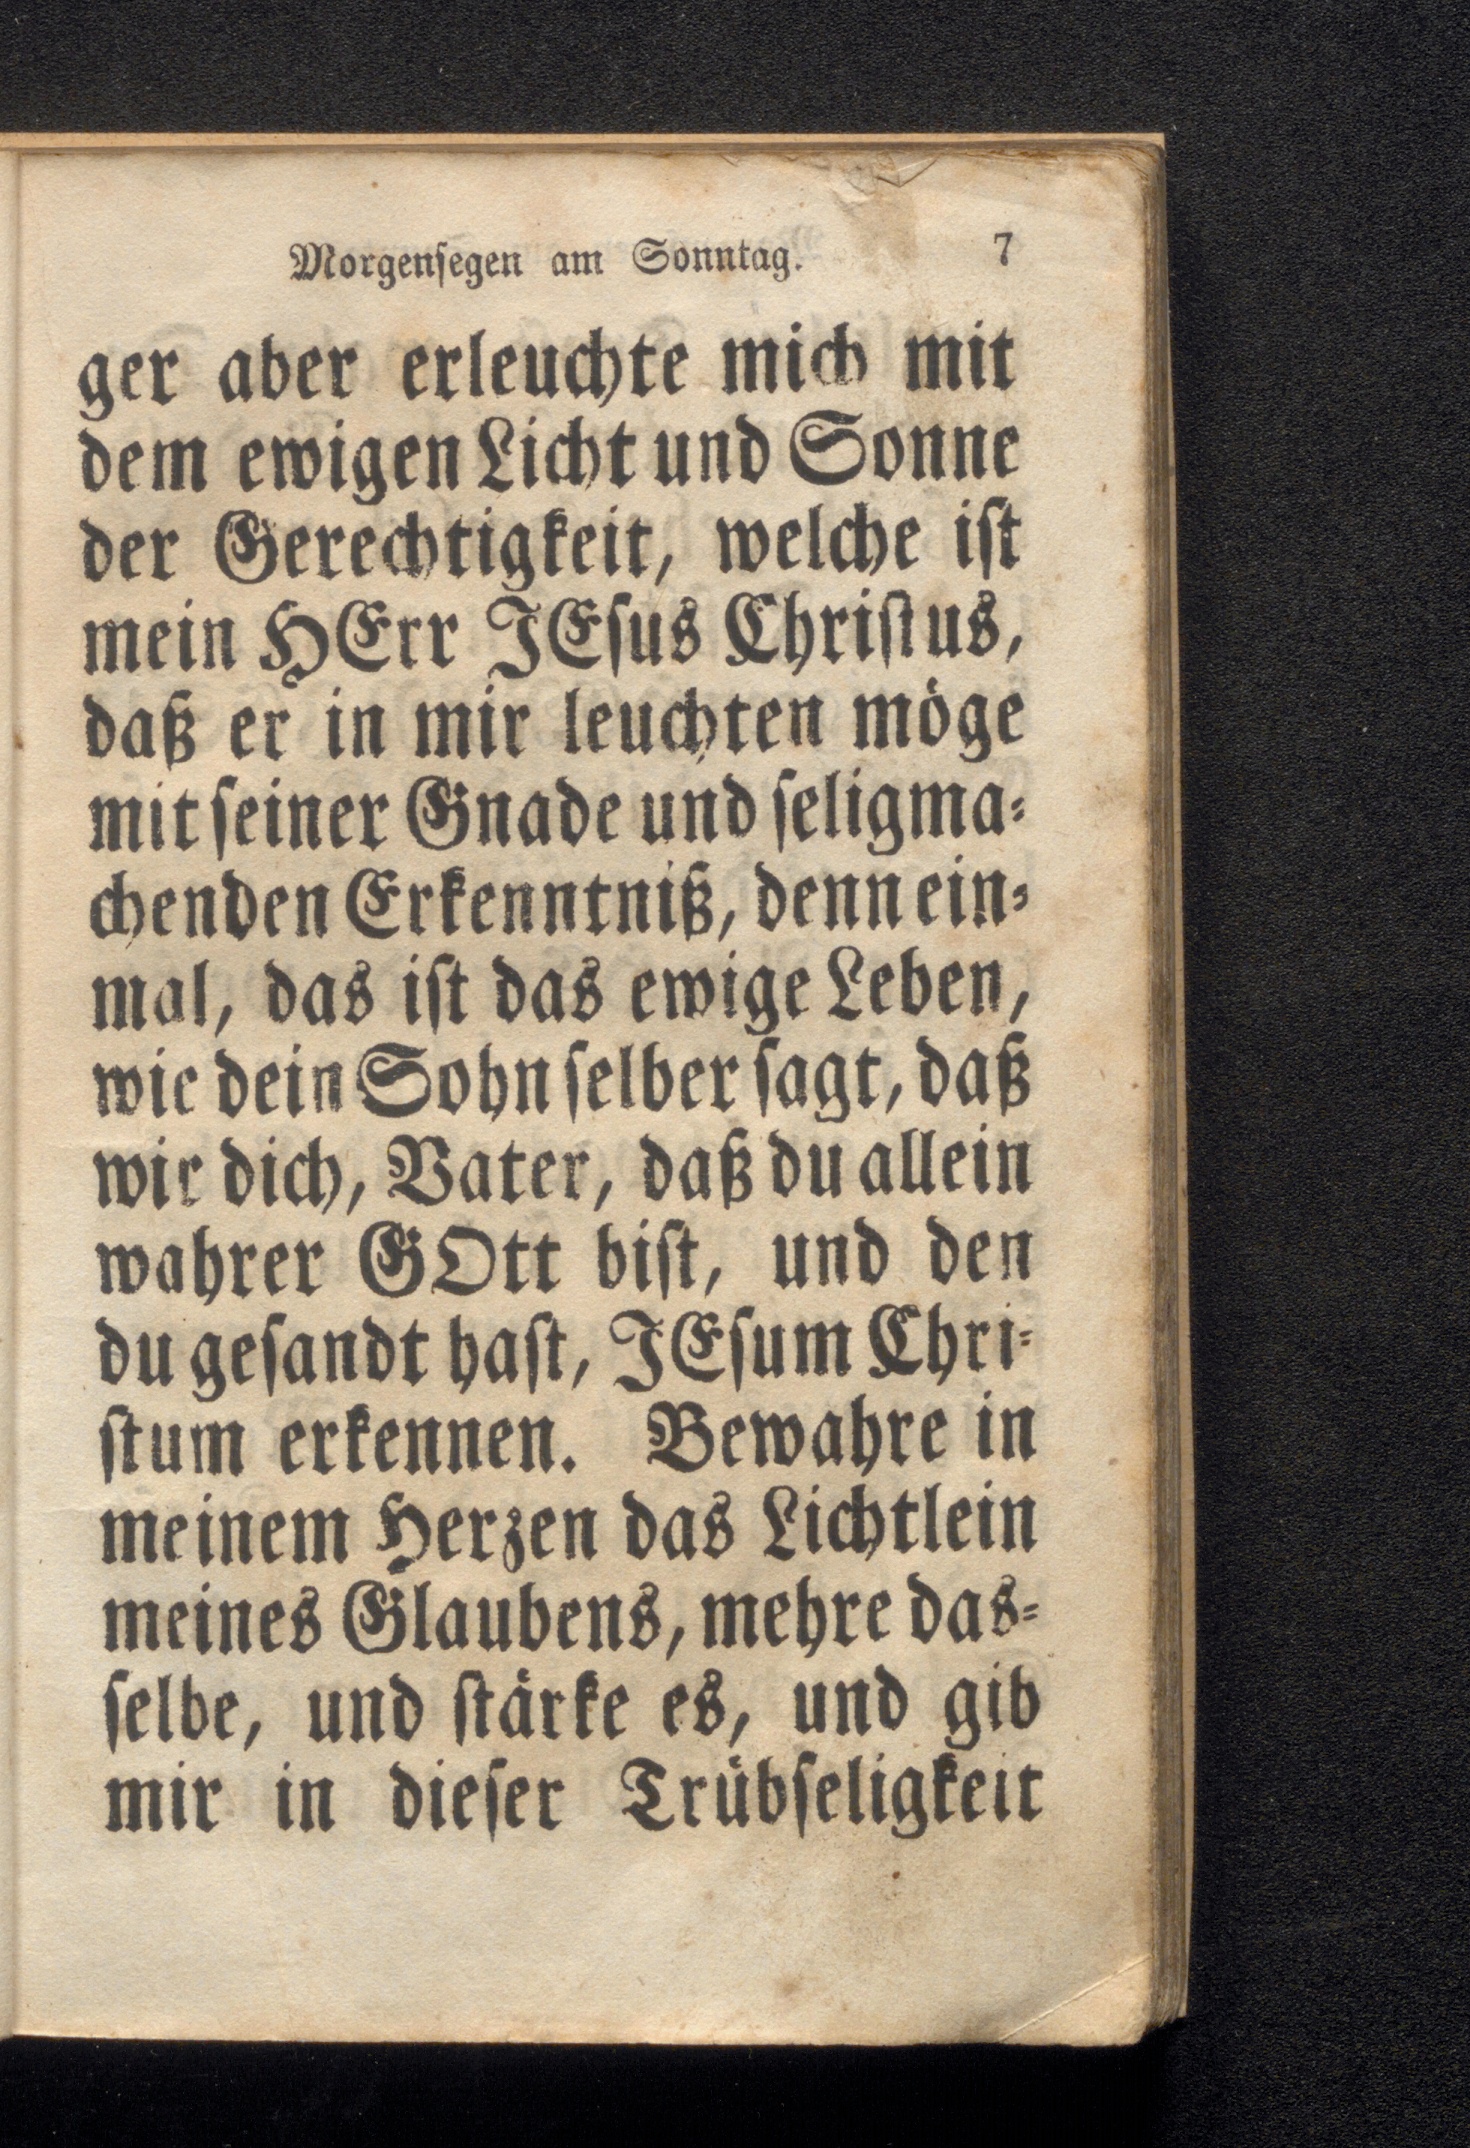 Morgenſegen am Sonntag. 7
ger aber erleuchte mich mit
dem ewigen Licht und Sonne
der Gerechtigkeit, welche iſt
mein HErr JEſus Chriſtus,
daß er in mir leuchten möge
mit ſeiner Gnade und ſeligma⸗
chenden Erkenntniß, denn ein⸗
mal, das iſt das ewige Leben,
wie dein Sohn ſelber ſagt, daß
wir dich, Vater, daß du allein
wahrer GOtt biſt, und den
du geſandt haſt, JEſum Chri⸗
ſtum erkennen. Bewahre in
meinem Herzen das Lichtlein
meines Glaubens, mehre das⸗
ſelbe, und ſtärke es, und gib
mir in dieſer Trübſeligkeit